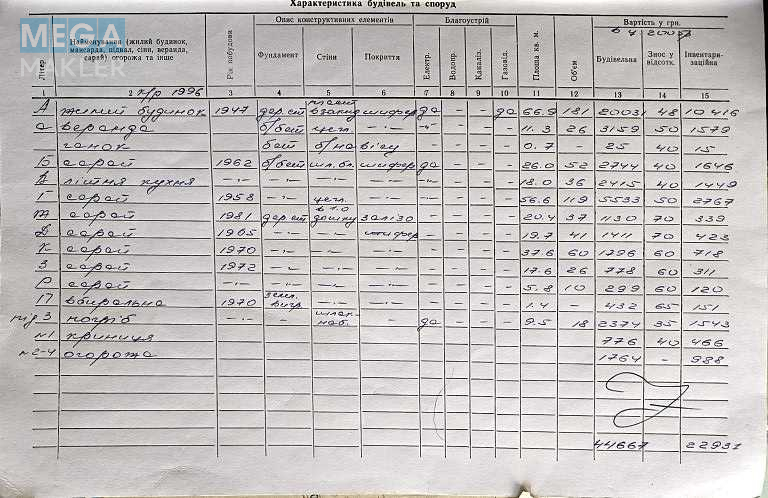 Характеристика будівель та споруд
MEGA
MAKLER
Літер
Найменування (жилий будинок, мансарда, підвал, сіни, веранда, сарай) огорожа та інше
Рік побудови
Опис конструктивних елементів
Фундамент
Стіни
Покриття
Благоустрій
Електр.
Водопр.
Каналіз.
Газовід.
Площа кв. м.
Об'єм
Вартість у грн.
Будівельна
Знос у відсотк.
Інвентаризаційна
1 2 3 4 5 6 7 8 9 10 11 12 13 14 15
1996
А жилий будинок 1947 дер.ст шифер да - - да 66.9 181 20031 48 10416
а веранда б/бет цегл. -"- -"- - - - 11.3 26 3159 50 1579
ганок бет б/навісу - - - - 0.7 - 25 40 15
Б сарай 1962 б/бет шл.бл. шифер да - - - 26.0 52 2744 40 1646
В літня кухня -"- -"- -"- -"- - - - - 18.0 36 2415 40 1449
Г сарай 1958 -"- цегл. -"- - - - - 56.6 119 5533 50 2767
Ж сарай 1981 дер.ст дошку залізо - - - - 20.4 37 1130 70 339
Д сарай 1965 -"- -"- шифер - - - - 19.7 41 1411 70 423
К сарай 1970 -"- -"- -"- - - - - 37.6 60 1796 60 718
З сарай 1972 -"- -"- -"- - - - - 17.6 26 778 60 311
сарай -"- -"- -"- -"- - - - - 5.8 10 299 60 120
П вбиральня 1970 -"- -"- - - - - 1.4 - 432 65 151
під З погріб - - - да - - - 9.5 18 2374 35 1543
№1 криниця 776 40 466
№2-4 огорожа 1764 - 988
44667 22931